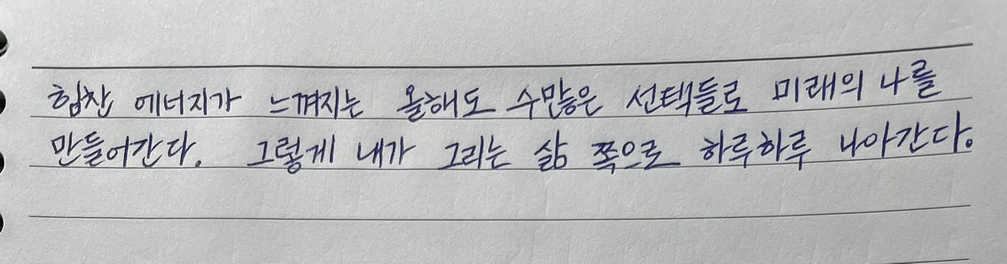 힘찬 에너지가 느껴지는 올해도 수많은 선택들로 미래의 나를
만들어간다. 그렇게 내가 그리는 삶 쪽으로 하루하루 나아간다.